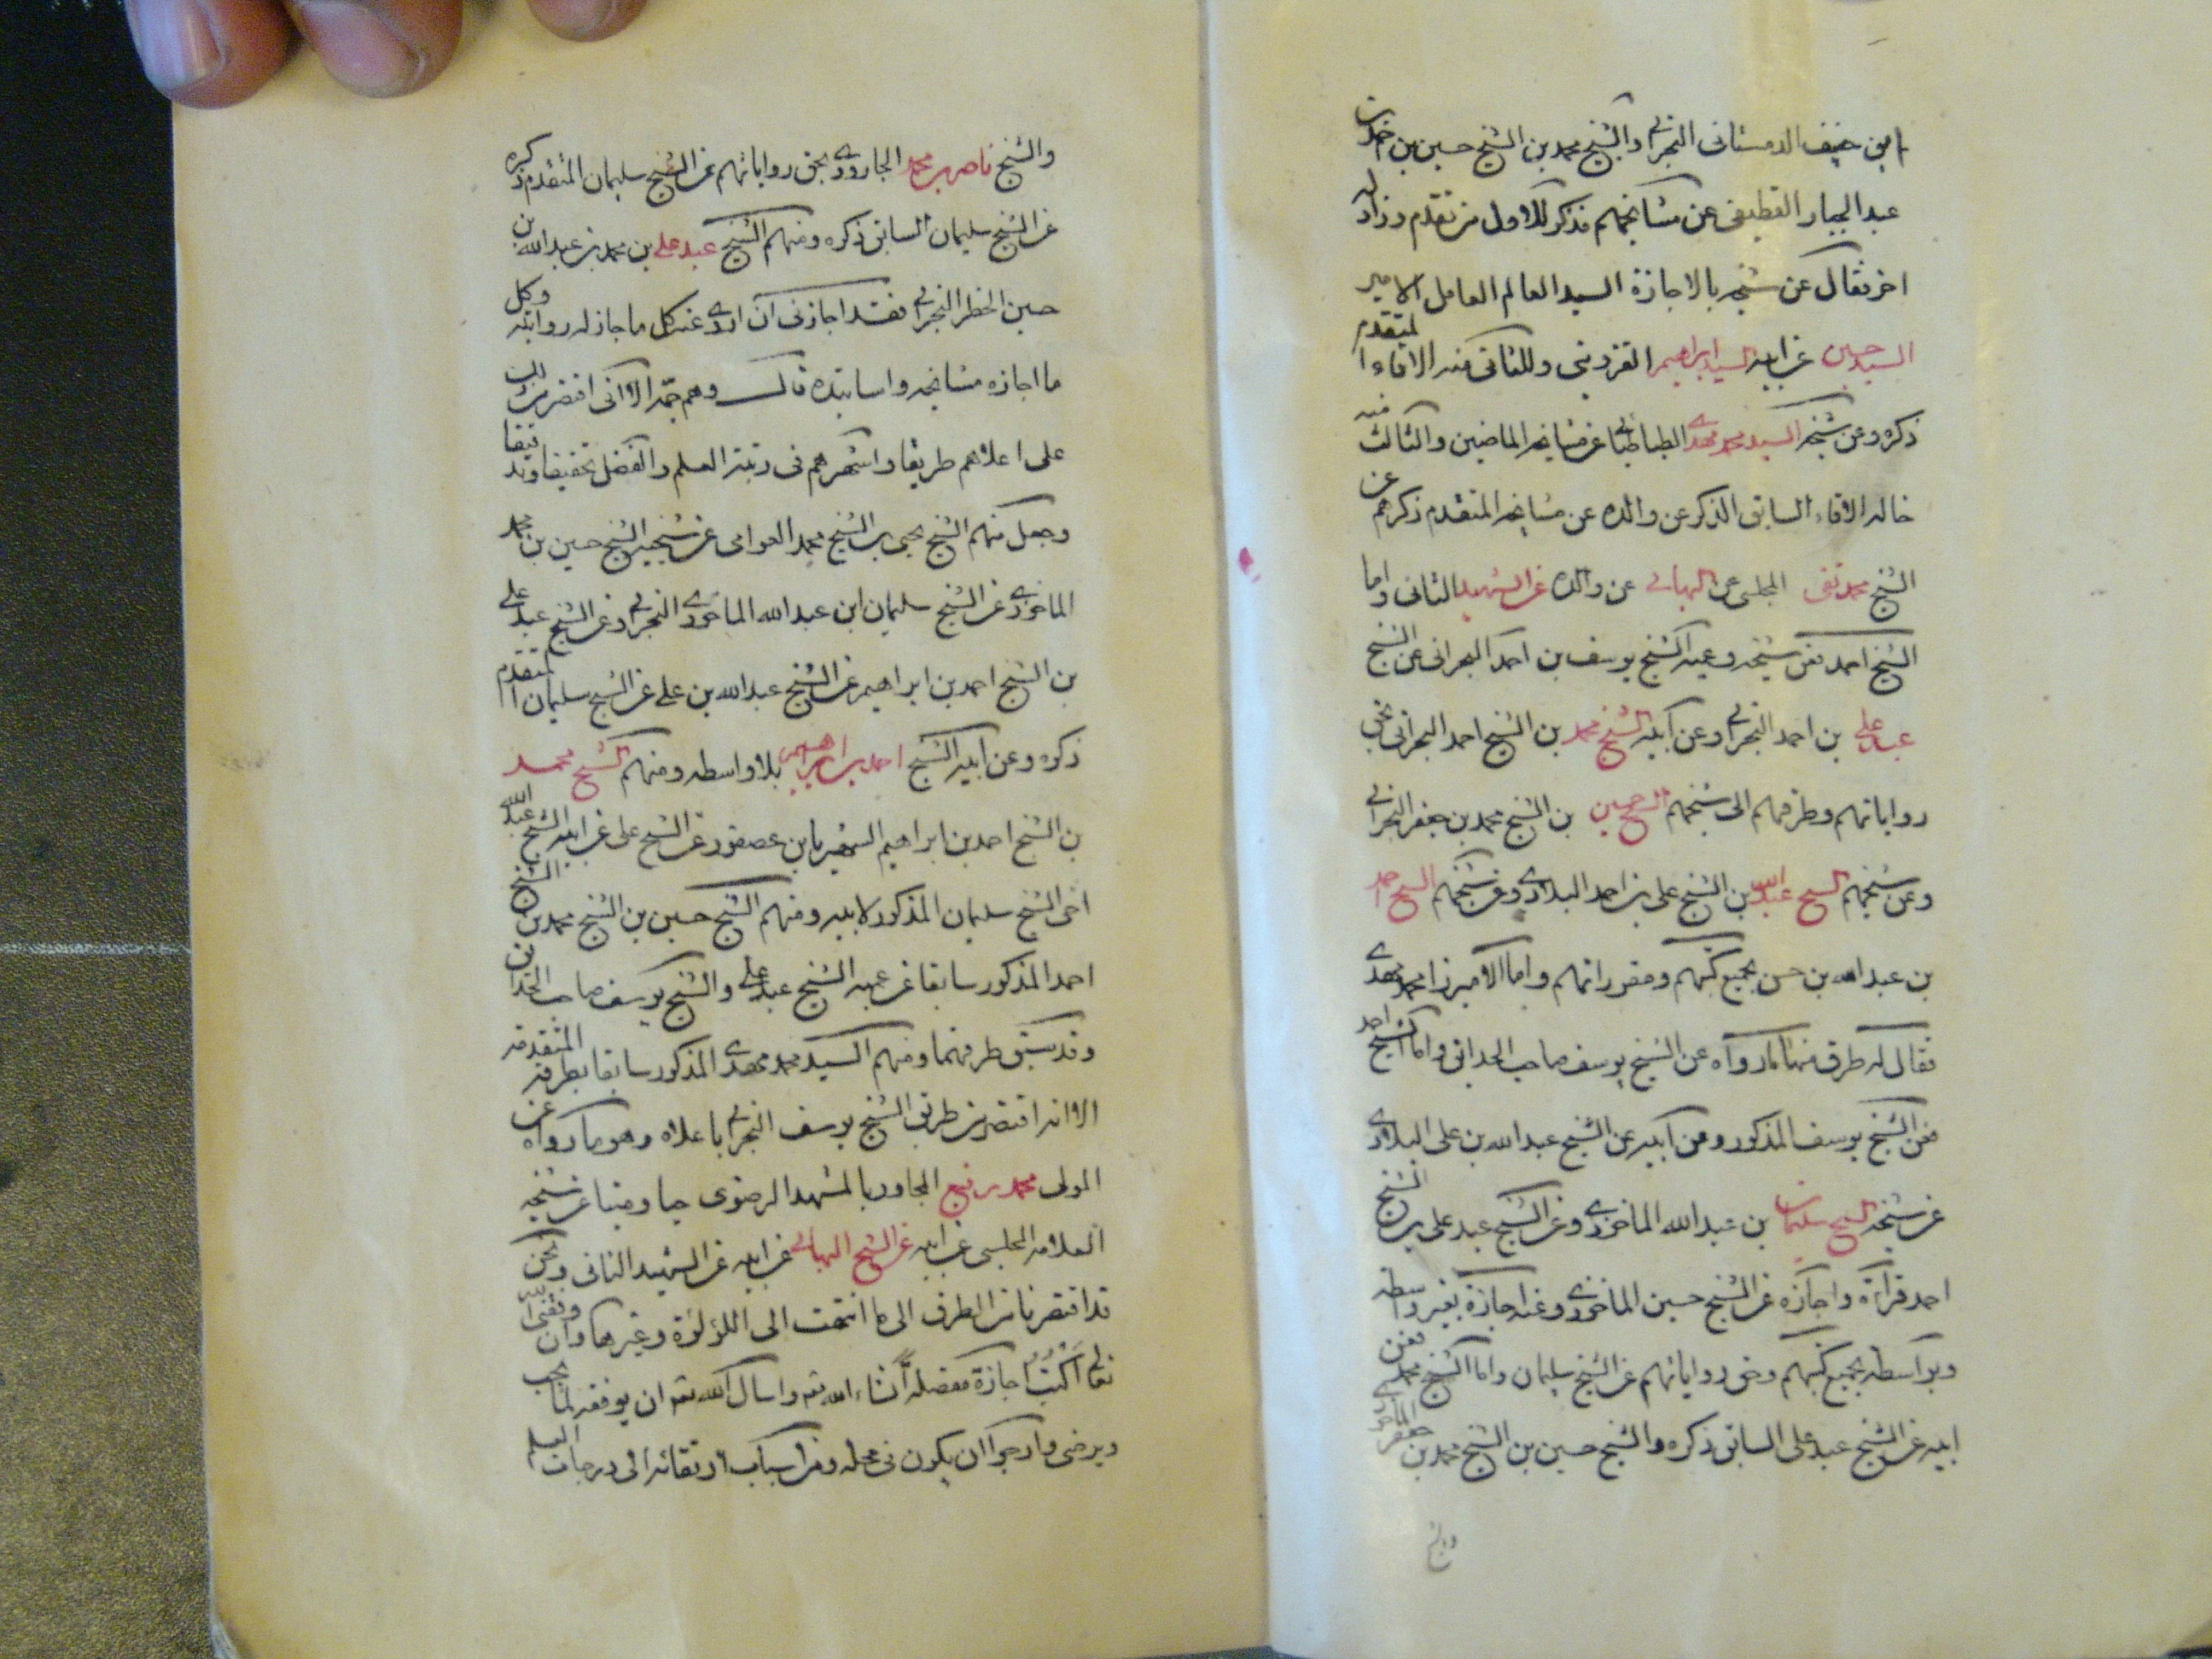 ابن حنيف الدمستاني البحراني والشيخ محمد بن الشيخ حسين بن احمد بن
عبد الجبار القطيفي عن مشايخهم فذكر للاول من تقدم وزاد له
اخر فقال عن شيخه بالاجازة السيد العالم العامل الامير
السيد حسين عن ابيه السيد ابراهيم القزويني وللثاني منه الاقاء المتقدم
ذكره وعن شيخه السيد محمد مهدي الطباطبائي عن مشايخه الماضين والثالث منه
خاله الاقاء السابق الذكر عن والده عن مشايخه المتقدم ذكرهم عن
الشيخ محمد تقي المجلسي عن البهائي عن والده عن الشهيد الثاني واما
الشيخ احمد فعن شيخه وعمه الشيخ يوسف بن احمد البحراني عن الشيخ
عبد علي بن احمد البحراني وعن ابيه الشيخ محمد بن الشيخ احمد البحراني بحق
رواياتهم وطرقهم الى شيخهم الشيخ حسين بن الشيخ محمد بن جعفر البحراني
وعن شيخهم الشيخ عبد الله بن الشيخ علي بن احمد البلادي وعن شيخهم الشيخ احمد
بن عبد الله بن حسن بجميع كتبهم ومقرراتهم واما الاميرزا محمد مهدي
فقال له طرق منها ما رواه عن الشيخ يوسف صاحب الحدائق واما الشيخ احمد
فعن الشيخ يوسف المذكور وعن ابيه عن الشيخ عبد الله بن علي البلادي
عن شيخه الشيخ سليمان بن عبد الله الماحوزي وعن الشيخ عبد علي بن الشيخ
احمد قراءة واجازة عن الشيخ حسين الماحوزي وعنه اجازة بغير واسطة
وبواسطة بجميع كتبهم وحق رواياتهم عن الشيخ سليمان واما الشيخ محمد فعن
ابيه عن الشيخ عبد علي السابق ذكره والشيخ حسين بن الشيخ محمد بن جعفر الماحوزي
والشيخ
والشيخ ناصر بن محمد الجارودي بحق رواياتهم عن الشيخ سليمان المتقدم ذكره
عن الشيخ سليمان السابق ذكره ومنهم الشيخ عبد علي بن محمد بن عبد الله بن
حسين الخطر البحراني فقد اجازني ان اروي عنه كل ما جاز له روايته وكل
ما اجازه مشايخه واساتيده قال وهم جمة الا اني اقتصر من ذلك
على اعلاهم طريقا واشهرهم في رتبة العلم والفضل تحقيقا وتدقيقا
وجعل منهم الشيخ يحيى بن الشيخ محمد العوامي عن شيخيه الشيخ حسين بن محمد
الماحوزي عن الشيخ سليمان ابن عبد الله الماحوزي البحراني وعن الشيخ عبد علي
بن الشيخ احمد بن ابراهيم عن الشيخ عبد الله بن علي عن الشيخ سليمان المتقدم
ذكره وعن ابيه الشيخ احمد بن ابراهيم بلا واسطه ومنهم الشيخ محمد
بن الشيخ احمد بن ابراهيم الشهير بابن عصفور عن الشيخ علي عن ابيه الشيخ عبد الله
اخي الشيخ سليمان المذكور لابيه ومنهم الشيخ حسين بن الشيخ محمد بن الشيخ
احمد المذكور سابقا عن عميه الشيخ عبد علي والشيخ يوسف صاحب الحدائق
وقد سبق طرقهما ومنهم السيد محمد مهدي المذكور سابقا بطرقه المتقدمة
الا انه اقتصر من طرق الشيخ يوسف البحراني باعلاه وهو ما رواه عن
المولى محمد رفيع المجاور بالمشهد الرضوي حيا وميتا عن شيخه
العلامه المجلسي عن ابيه عن الشيخ البهائي عن ابيه عن الشهيد الثاني ونحن
قد اقتصرنا من الطرق الى ما انتهت الى اللؤلؤة وغيرها وان وفقني الله
تعالى اكتب اجازة مفصلة انشاء الله تع واسال الله تع ان يوفقه لما يحب
ويرضى وارجوا ان يكون في محله ومن اسباب ارتقائه الى درجات العلم